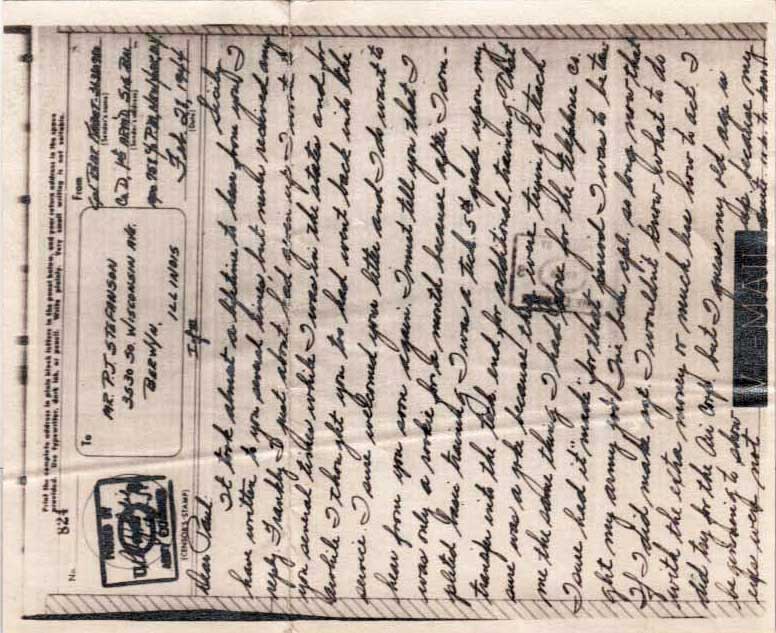 Print the complete address in plain block letters in the panel below, and your return address in the space
provided. Use typewriter, dark ink, or pencil. Write plainly. Very small writing is not suitable.
No.
824
PASSED BY
ARMY EXAMINER
(CENSOR'S STAMP)
To
MR. P.J. STEFANSON
3530 SO. WISCONSIN AVE.
BERWYN,
ILLINOIS
From
(Sender's name)
Co. D, 1st ARM'D SIG BN
(Sender's address)
Feb. 21, 1944
(Date)
Sicily
Dear Paul
It took almost a lifetime to hear from you. I
have written to you several times but never received any
reply. Frankly I just about had given up. I wrote to
you several times while I was in the states and for
awhile I thought you too had went back into the
service. I sure welcomed your letter and I do want to
hear from you soon again. I must tell you that I
was only a rookie for a month because after I com-
pleted basic training I was a tech 5th grade upon my
transfer into the tech end for additional training. That
sure was a joke because they were trying to teach
me the same thing I had done for the telephone co.
I sure had it "made" for that period. I was to be tau
ght my army job. I've been cpl. so long now that
if I did make sgt. I wouldn't know what to do
with the extra money or much less how to act. I
did try for the Air Corp but I guess my old age is
beginning to show because my
eyes were not
V-MAIL